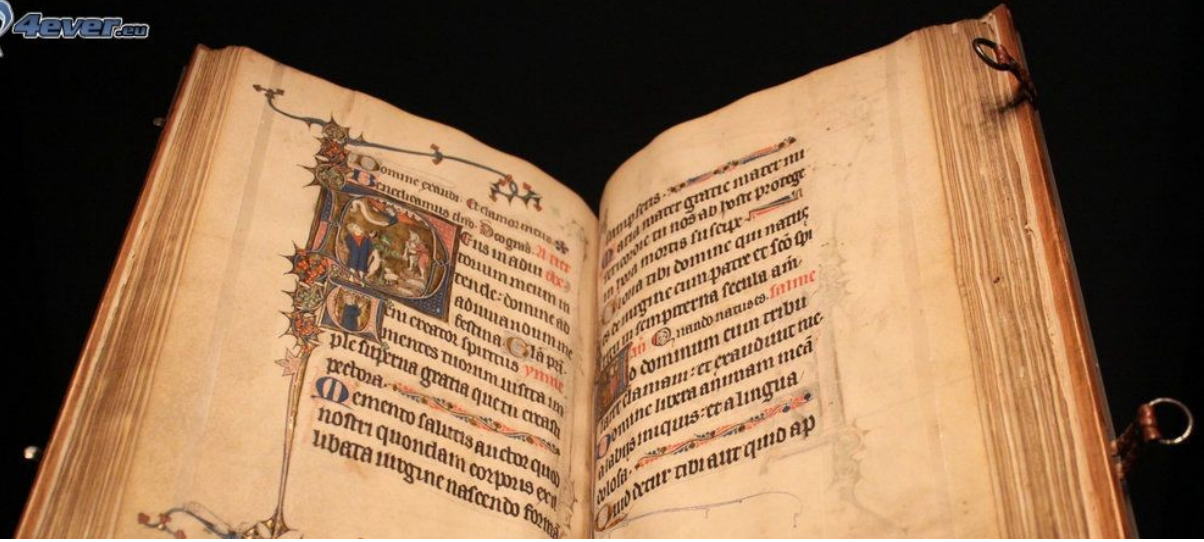 4ever.eu
Domine exaudi. Et clamor
Benedicamus dño. Deo gras.
Eus in adiu
torium meum in
tende: domine ad
adiuuandum me
festina Gła pri.
eni creator spiritus ymne
mentes tuorum uisita im
ple superna gratia que tu creasti
pectora.
Memento salutis auctor quod
nostri quondam corporis ex il
libata uirgine nascendo formā
sumpseris.
Maria mater gratie mater mi
sericordie tu nos ab hoste protege
in hora mortis suscipe
Gloria tibi domine qui natus
es de uirgine cum patre et sc̄o spū
in sempiterna secula am̄.
añ Quando natus es. saume
Ad dominum cum tribu
larer clamaui: et exaudiuit me.
Domine libera animam meā
a labijs iniquis: et a lingua
dolosa.
Quid detur tibi aut quid ap